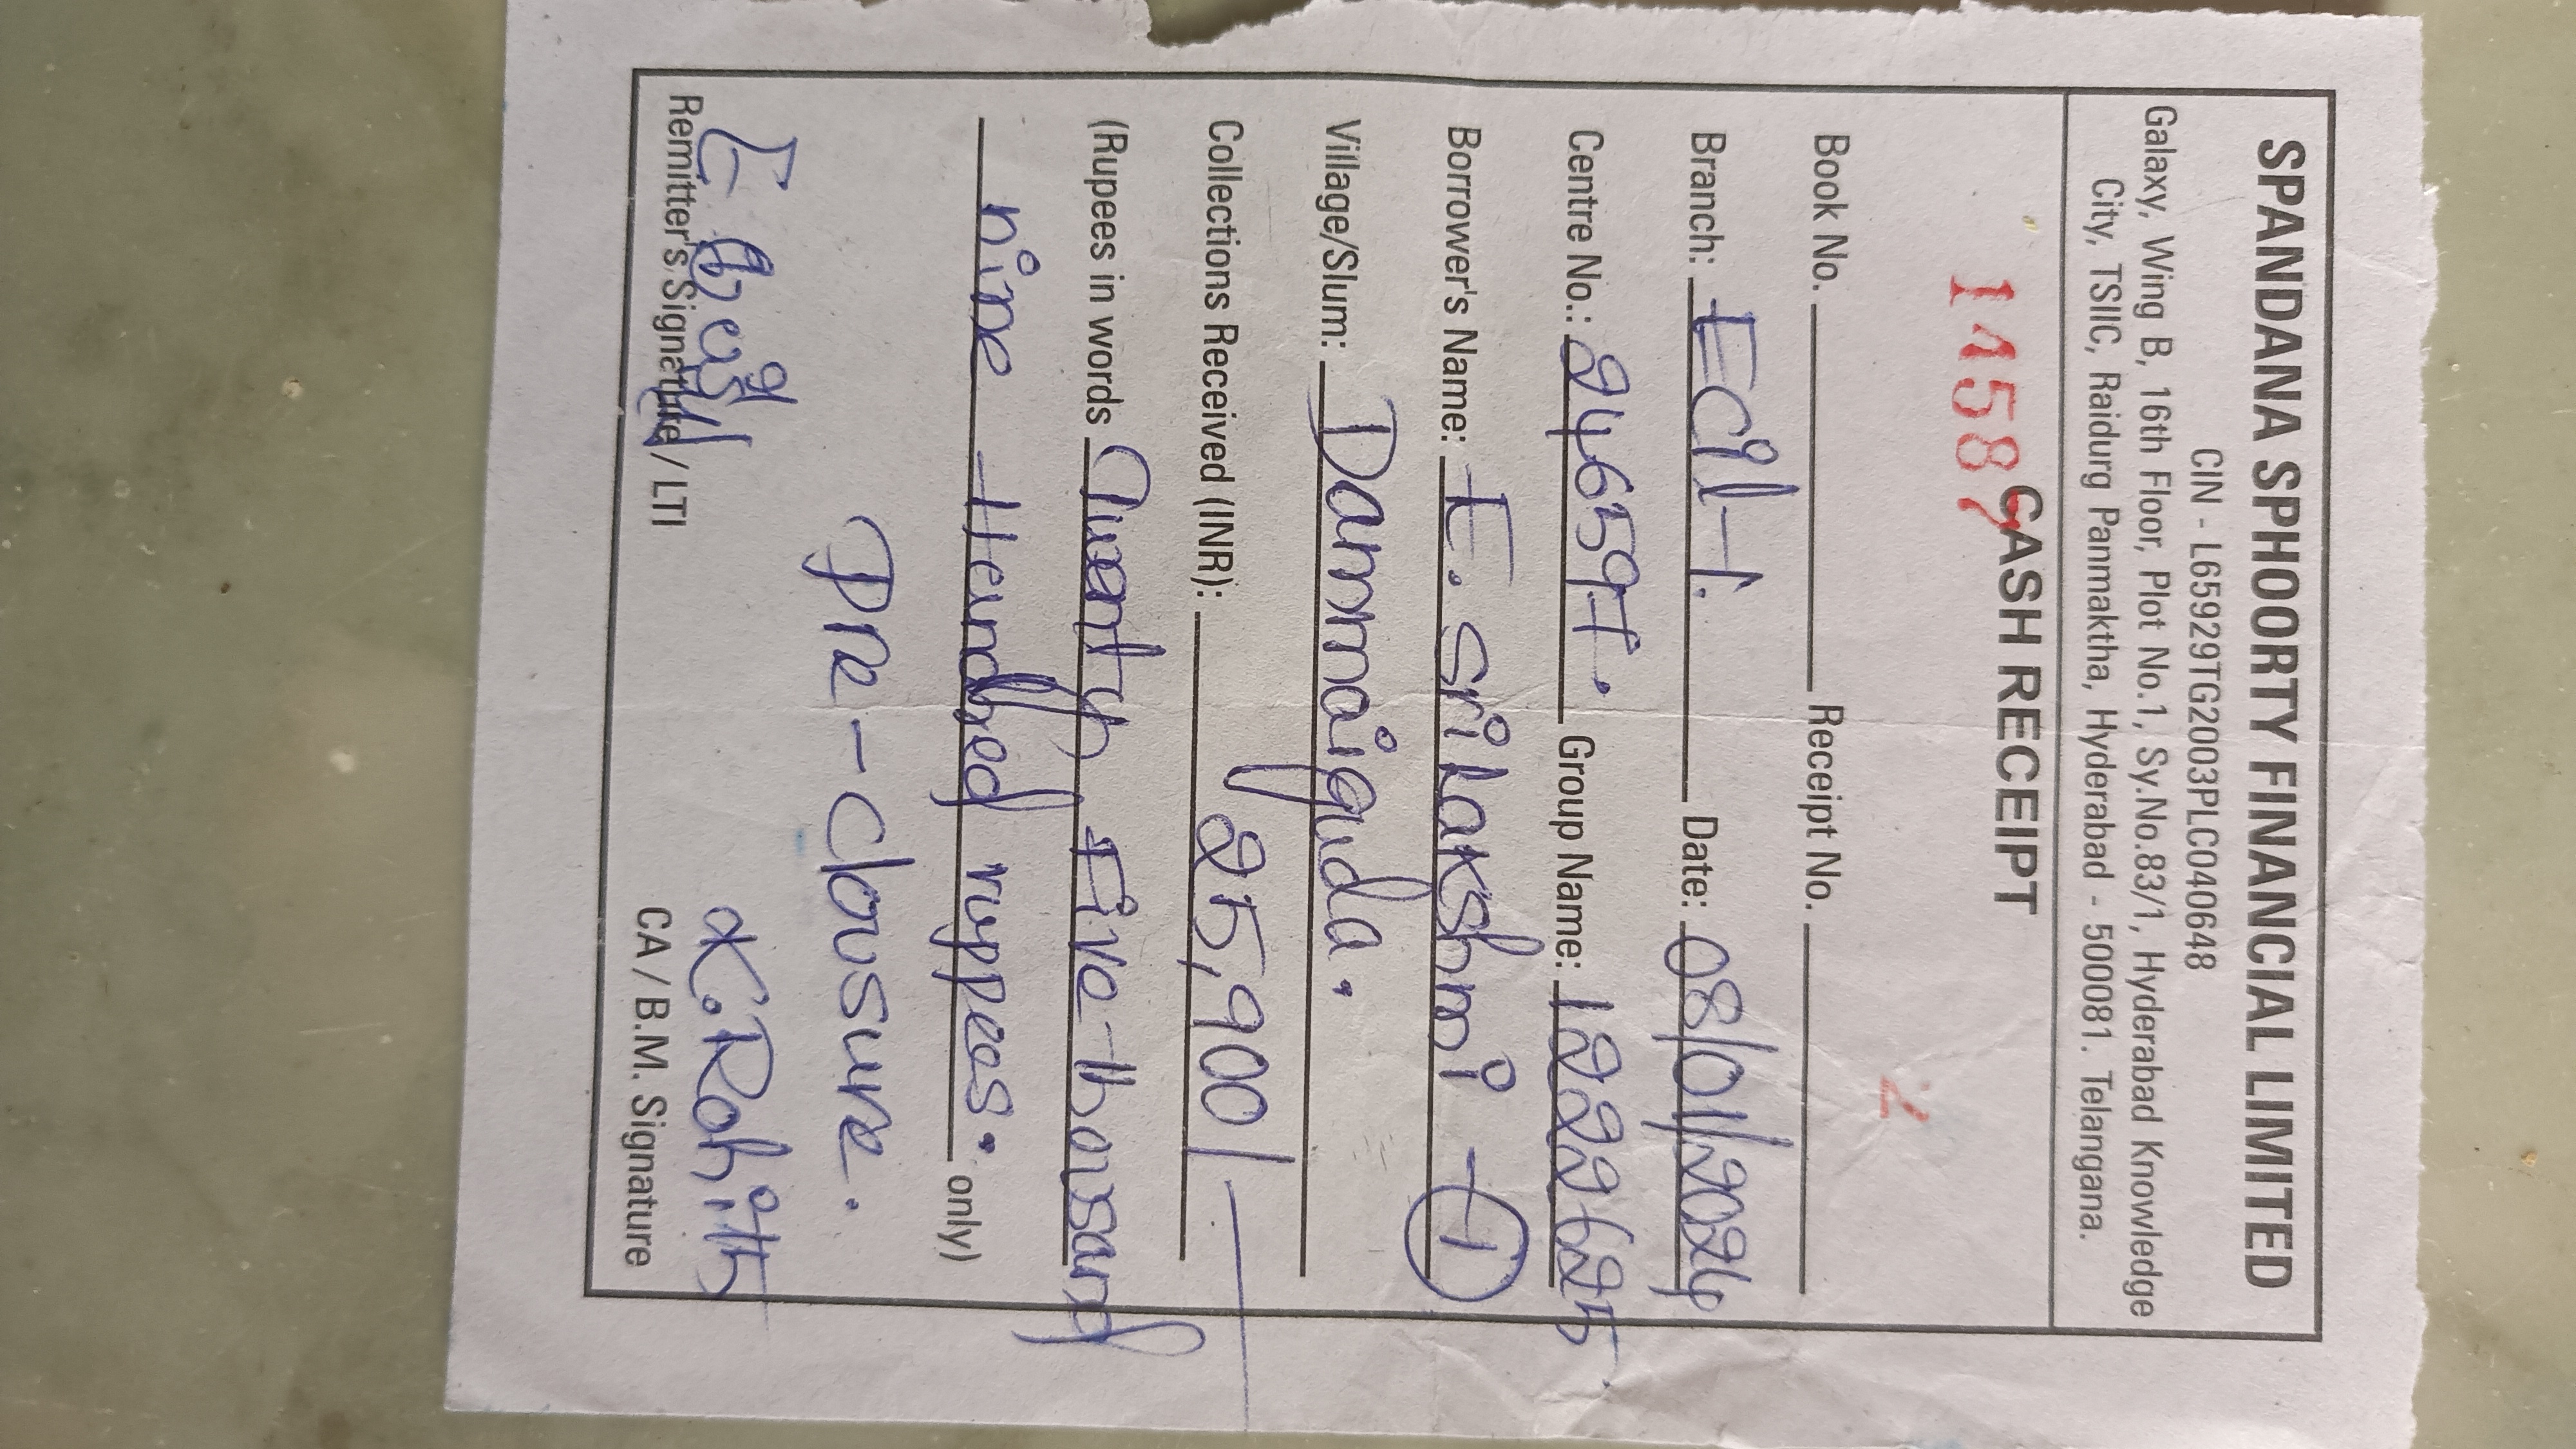 SPANDANA SPHOORTY FINANCIAL LIMITED
CIN - L65929TG2003PLC040648
Galaxy, Wing B, 16th Floor, Plot No.1, Sy.No.83/1, Hyderabad Knowledge
City, TSIIC, Raidurg Panmaktha, Hyderabad - 500081. Telangana.
CASH RECEIPT
14587
Book No. Receipt No.
Branch: ECIL-1. Date: 08/01/2024
Centre No.: 246597. Group Name: 12222625.
Borrower's Name: E. Sri Lakshmi - 1
Village/Slum: Dammaiguda.
Collections Received (INR): 25,900/-
(Rupees in words Twenty Five thousand
nine Hundred ruppees. only)
Pre-Clousure.
K. Rohith
Remitter's Signature / LTI CA / B.M. Signature